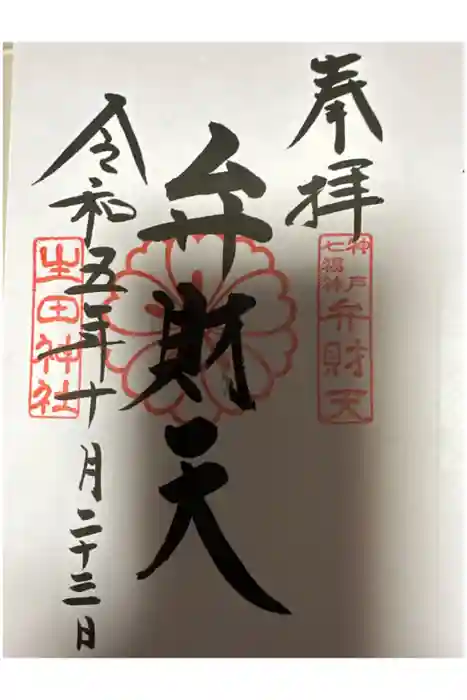 奉拝
神戸
七福神
弁財天
弁財天
令和五年十月二十三日
生田神社